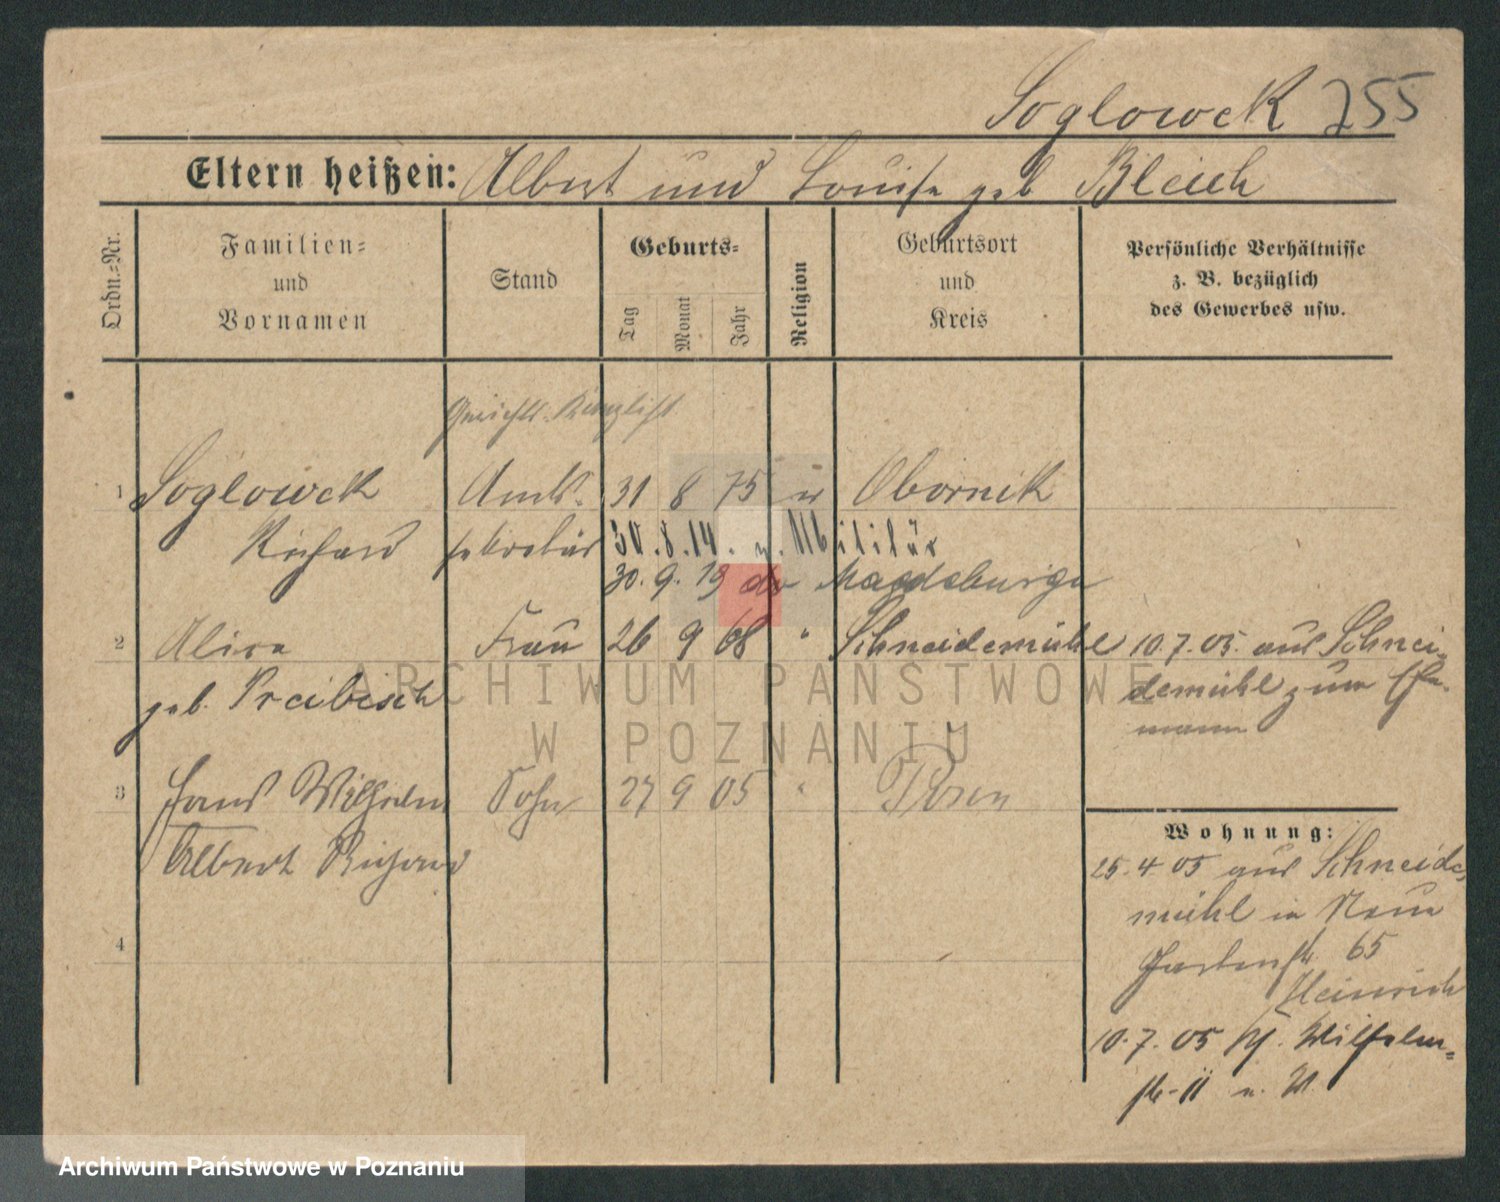 Soglowek 755
Eltern heißen: Albert und Louise geb Bleich
Ordn.=Nr.
Familien=
und
Vornamen
Stand
Geburts=
Tag
Monat
Jahr
Religion
Geburtsort
und
Kreis
Persönliche Verhältnisse
z. B. bezüglich
des Gewerbes usw.
Gerichts-Kanzlist
1 Soglowek Amts- 31 8 75 Obornik
Richard sekretär 30.8.14. z. Militär
30.9.19 do Magdeburg
2 Frau 26 9 68 " Schneidemühl 10.7.05. aus Schnei-
geb. Preibisch demühl zum Ehe-
mann
3 Hans Wilhelm Sohn 27 9 05 " Posen
Albert Richard
4
Wohnung:
25.4 05 aus Schneide-
mühl in Neue
Gartenstr 65
Heinrich
10.7.05 Wilhelm-
str. 11
ARCHIWUM PAŃSTWOWE
W POZNANIU
Archiwum Państwowe w Poznaniu